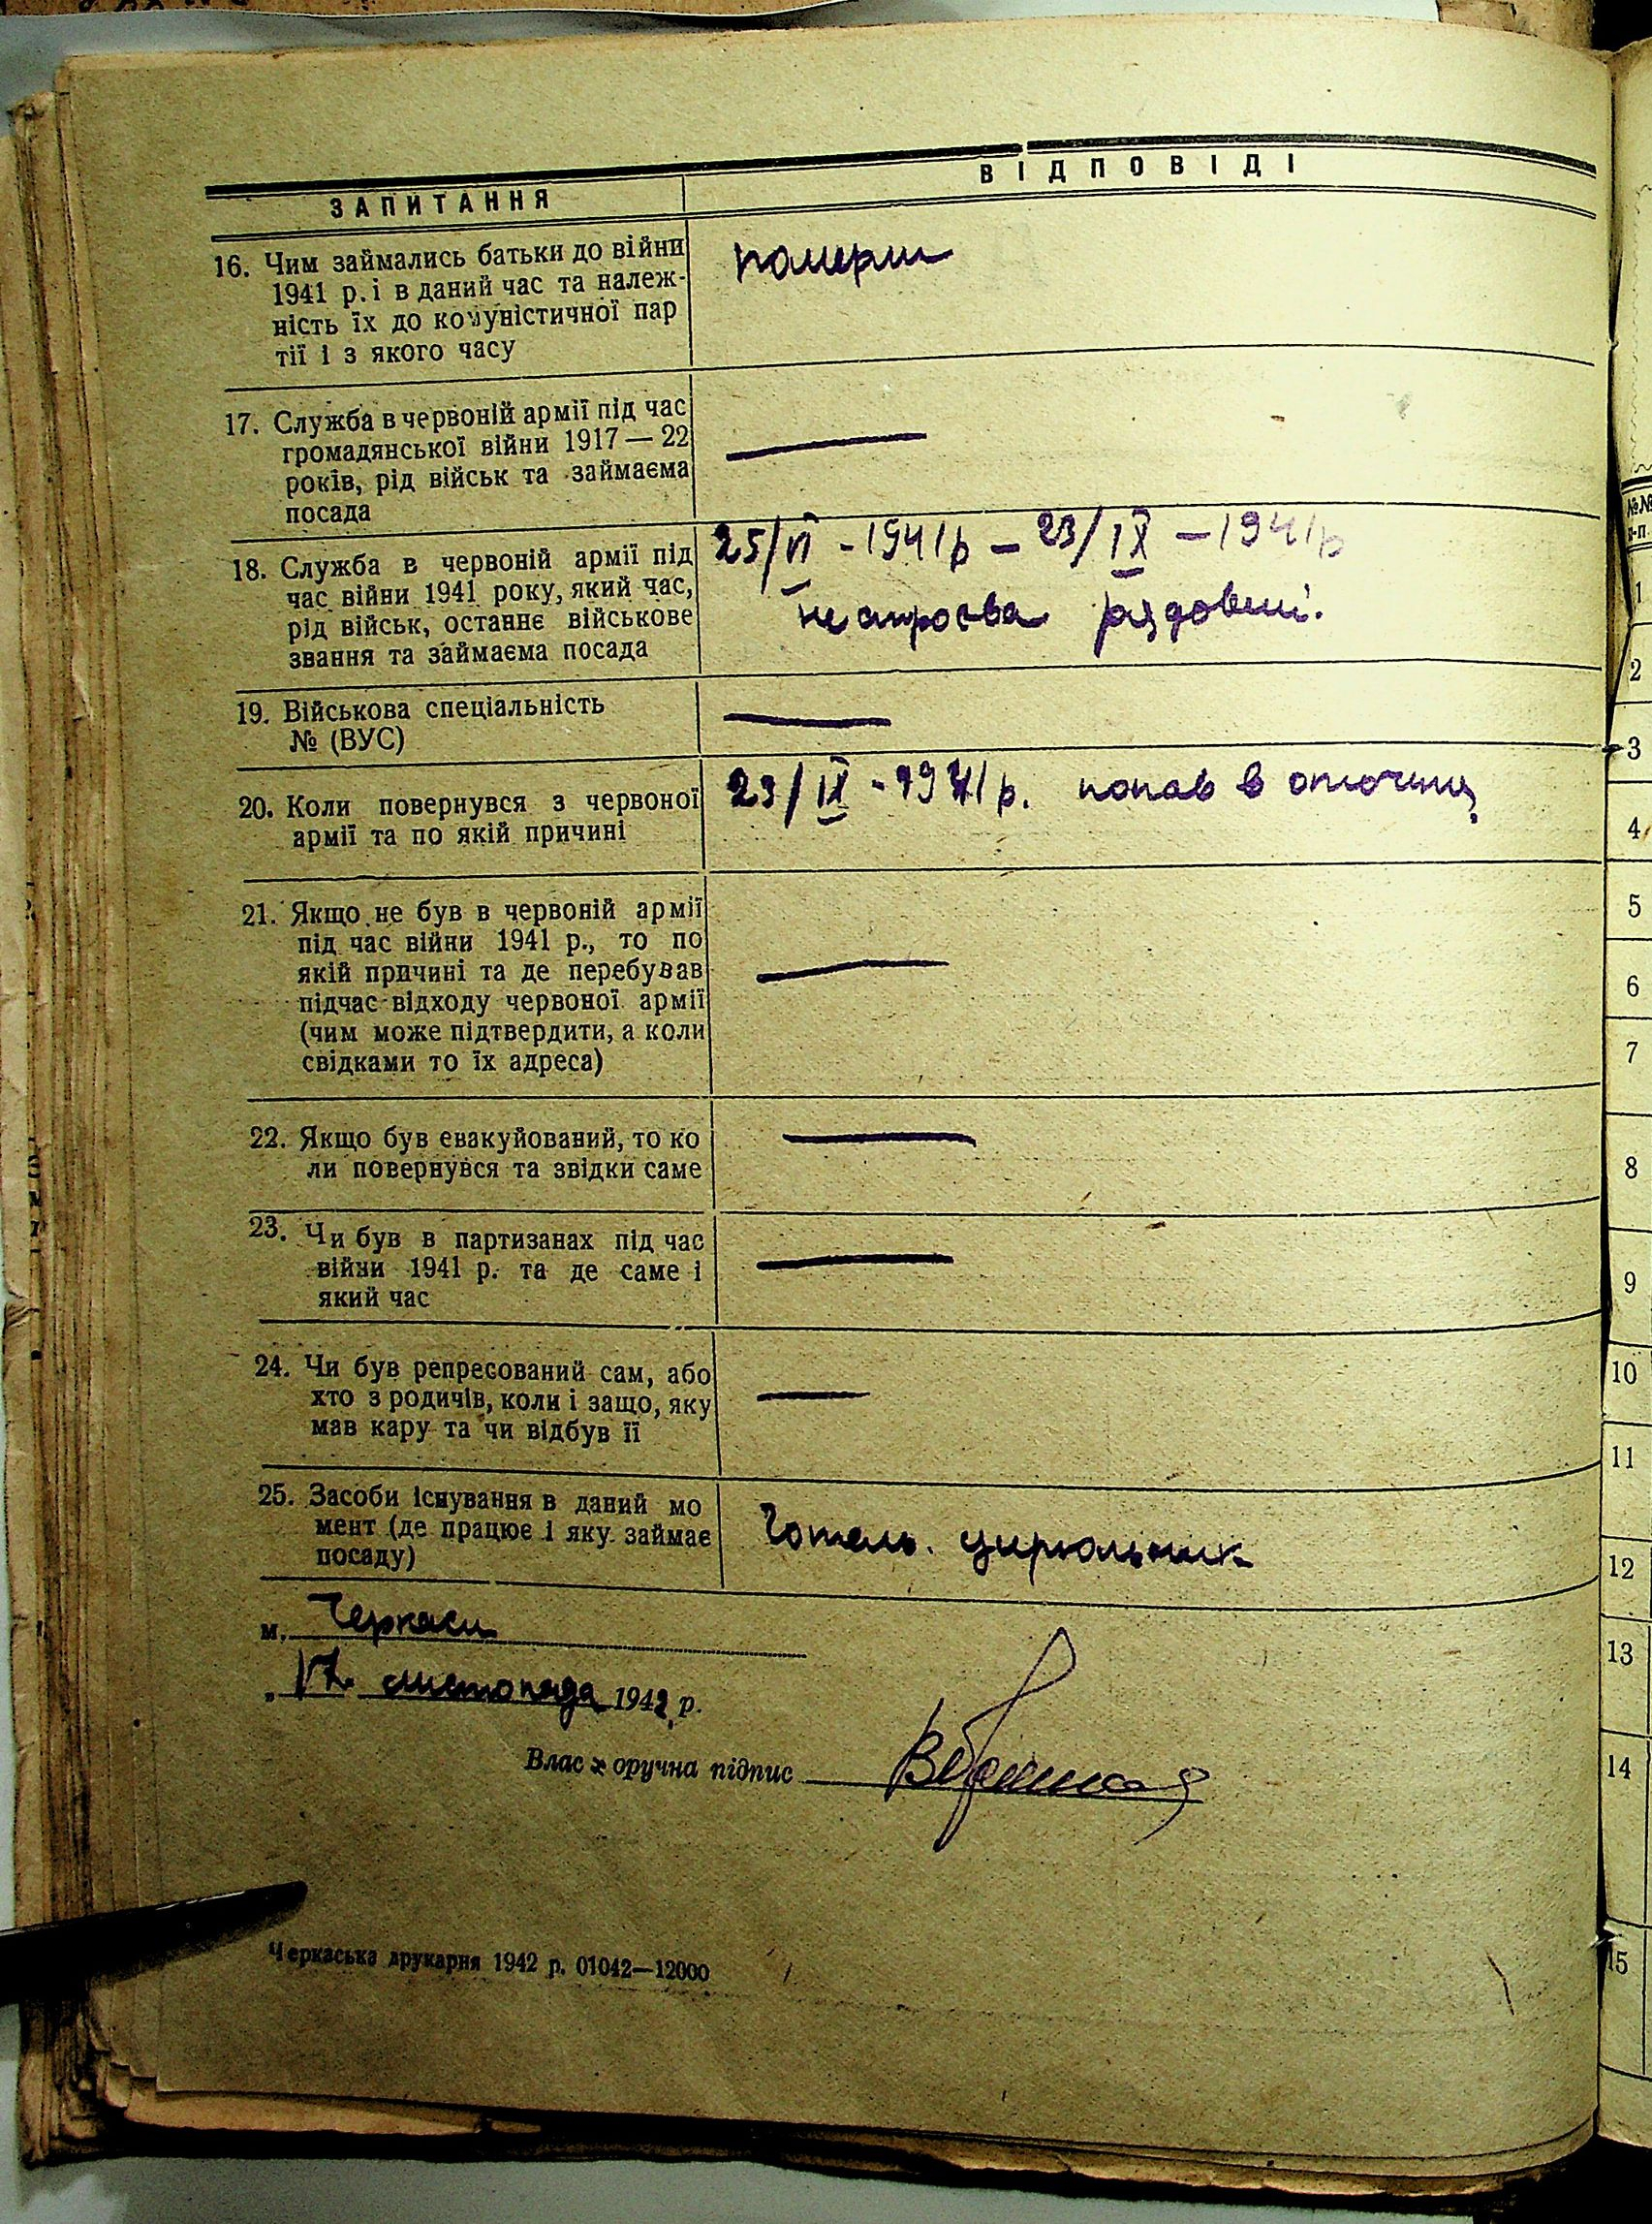 ЗАПИТАННЯ
ВІДПОВІДІ
16. Чим займались батьки до війни
1941 р. і в даний час та належ-
ність їх до комуністичної пар
тії і з якого часу
померли
17. Служба в червоній армії під час
громадянської війни 1917 — 22
років, рід військ та займаєма
посада
18. Служба в червоній армії під
час війни 1941 року, який час,
рід військ, останнє військове
звання та займаєма посада
25/VI - 1941р - 23/IX - 1941р
рядовий.
19. Військова спеціальність
№ (ВУС)
20. Коли повернувся з червоної
армії та по якій причині
23/IX - 1941р. попав в оточення
21. Якщо не був в червоній армії
під час війни 1941 р., то по
якій причині та де перебував
підчас відходу червоної армії
(чим може підтвердити, а коли
свідками то їх адреса)
22. Якщо був евакуйований, то ко
ли повернувся та звідки саме
23. Чи був в партизанах під час
війни 1941 р. та де саме і
який час
24. Чи був репресований сам, або
хто з родичів, коли і защо, яку
мав кару та чи відбув її
25. Засоби існування в даний мо
мент (де працює і яку займає
посаду)
Готель. цирюльник
м. Черкаси
„17" листопада 1942 р.
Власноручна підпис
Черкаська друкарня 1942 р. 01042—12000
№№
п-п
1
2
3
4
5
6
7
8
9
10
11
12
13
14
15